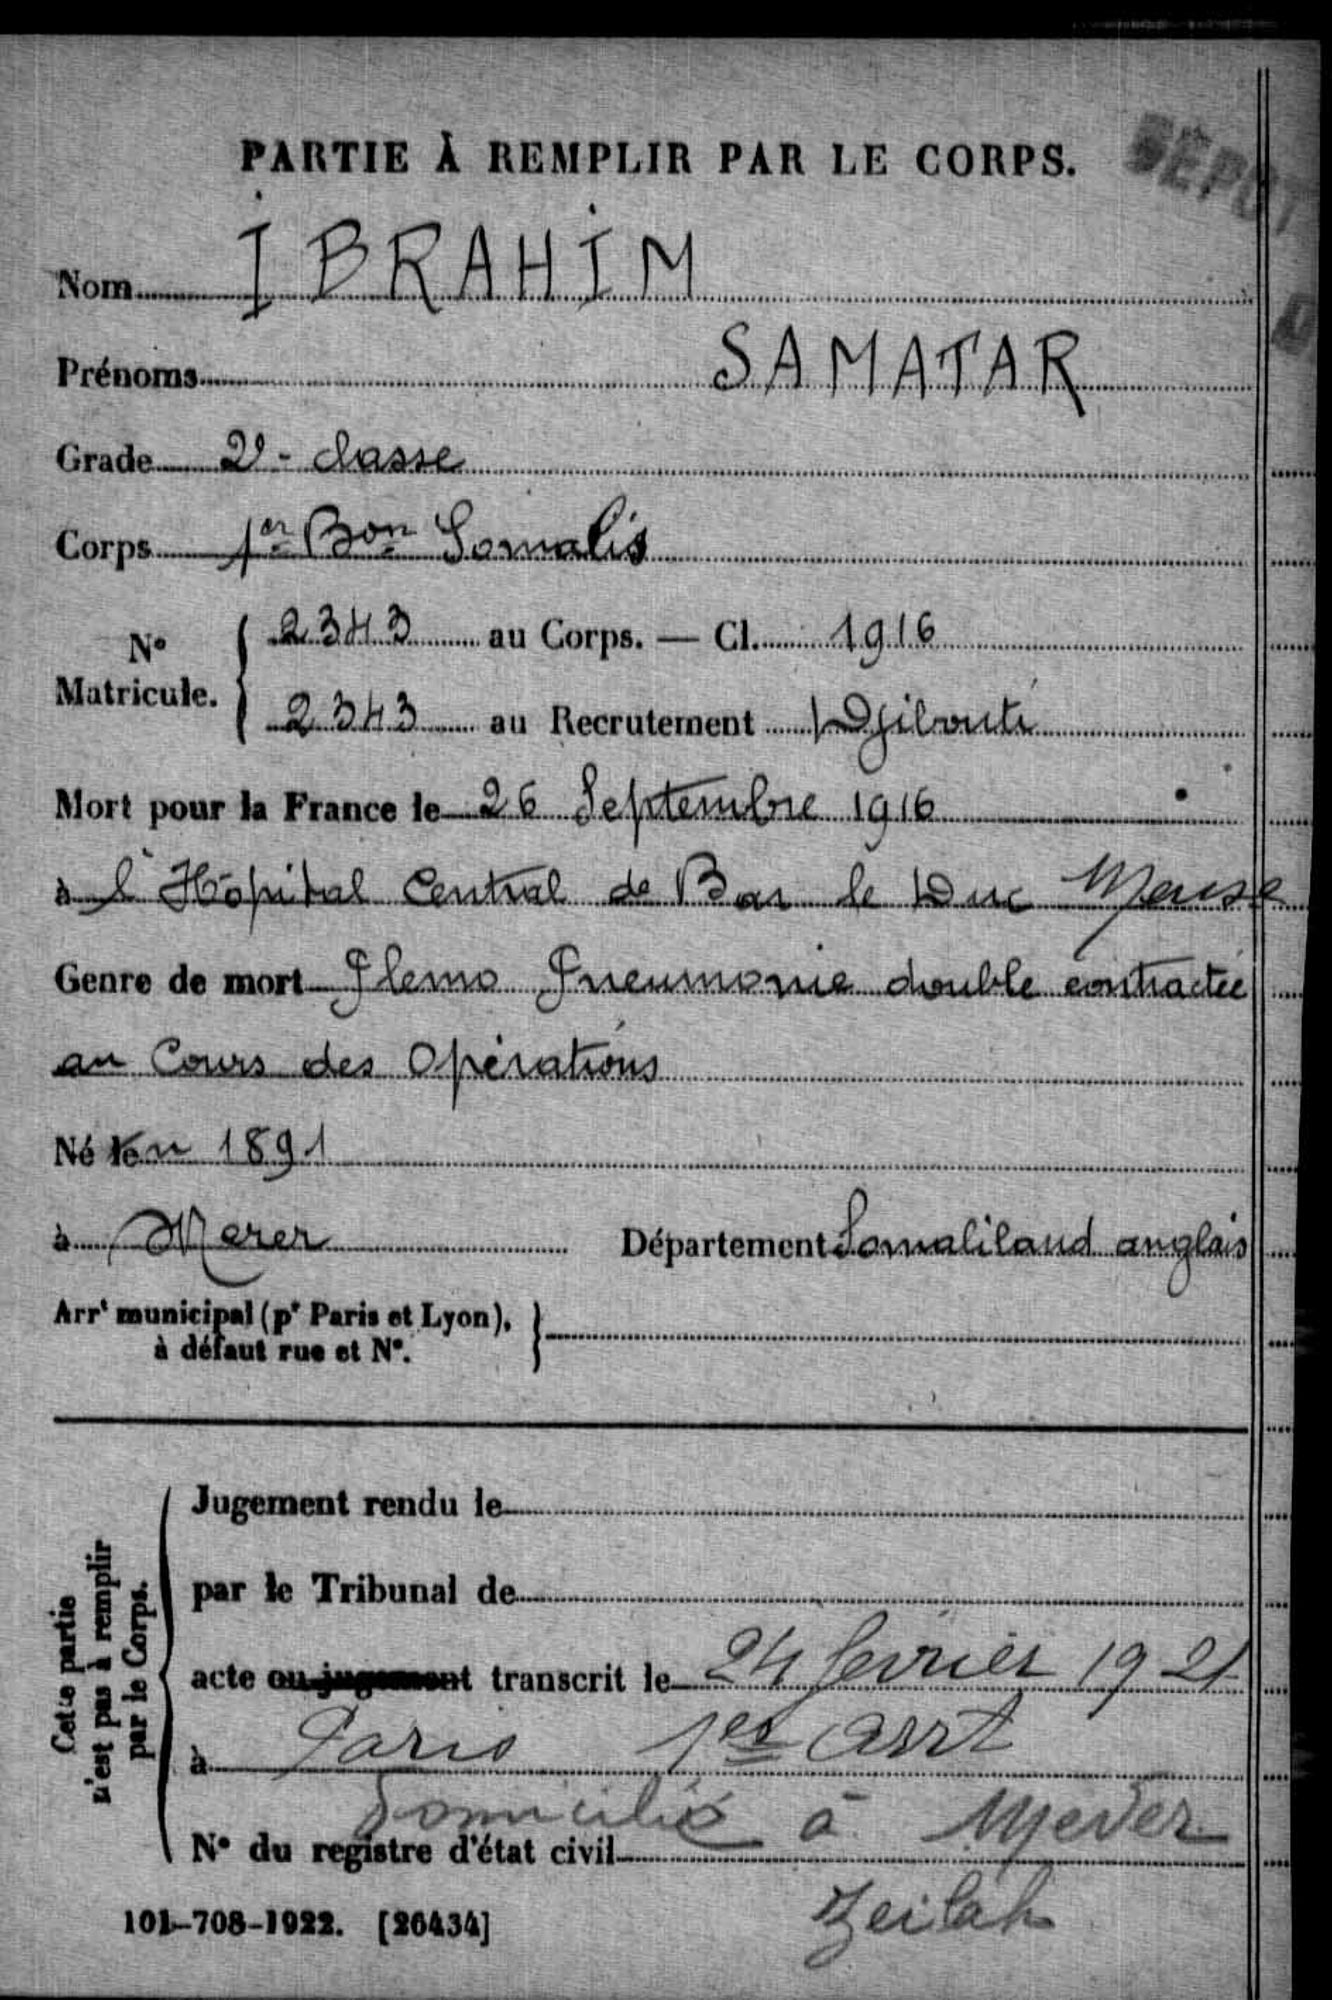 PARTIE À REMPLIR PAR LE CORPS.
DÉPÔT
Nom IBRAHIM
Prénoms SAMATAR
Grade 2e - classe
Corps 1er Bon Somalis
N° Matricule. 2343 au Corps. — Cl. 1916
2343 au Recrutement Djibouti
Mort pour la France le 26 Septembre 1916
à l'Hôpital Central de Bar le Duc Meuse
Genre de mort Plemo Pneumonie double contractée
au Cours des Opérations
Né le en 1891
à Merer Département Somaliland anglais
Arrt municipal (pr Paris et Lyon),
à défaut rue et N°.
Cette partie
n'est pas à remplir
par le Corps.
Jugement rendu le
par le Tribunal de
acte ou jugement transcrit le 24 fevrier 1921
à Paris 1er arrt
Domicilié à
N° du registre d'état civil
Zeilah
101-708-1922. [26434]